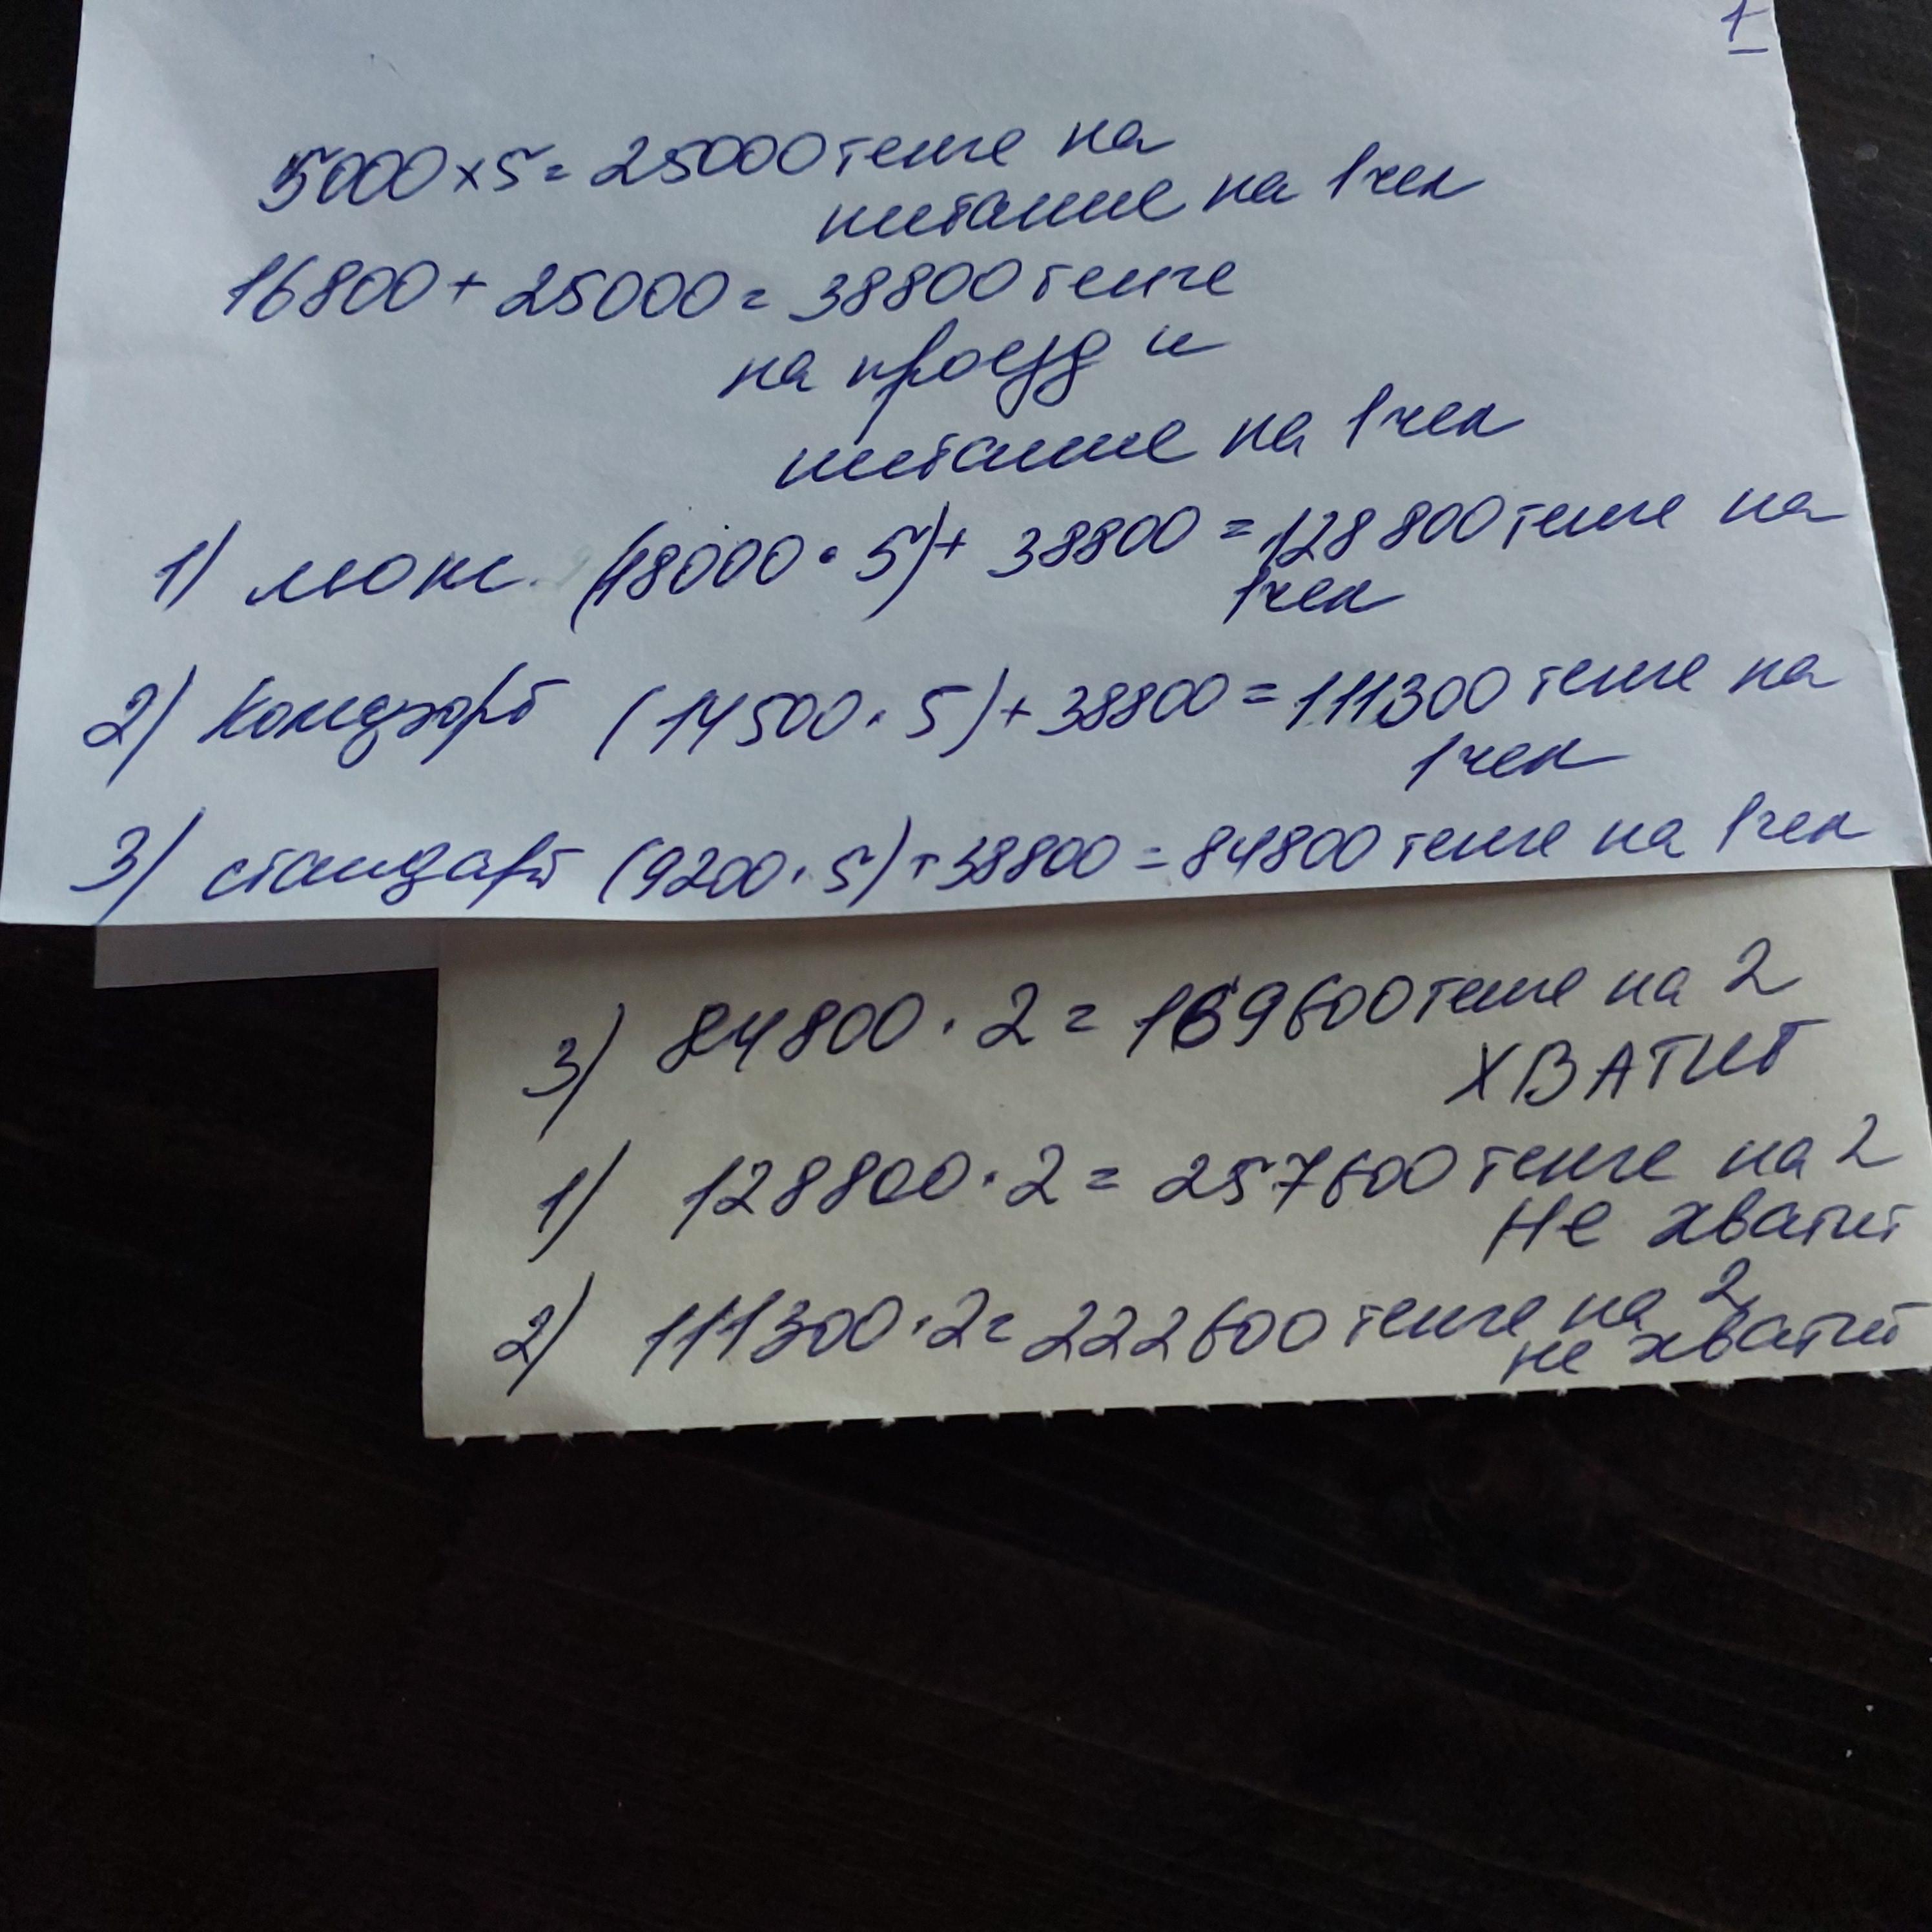 1
5000×5=25000 тенге на
питание на 1 чел
16800+25000=38800 тенге
на проезд и
питание на 1 чел
1) люкс (18000·5)+38800=128800 тенге на
1 чел
2) Комфорт (14500·5)+38800=111300 тенге на
1 чел
3) стандарт (9200·5)+38800=84800 тенге на 1 чел
3) 84800·2=169600 тенге на 2
ХВАТИТ
1) 128800·2=257600 тенге на 2
Не хватит
2) 111300·2=222600 тенге на 2
не хватит